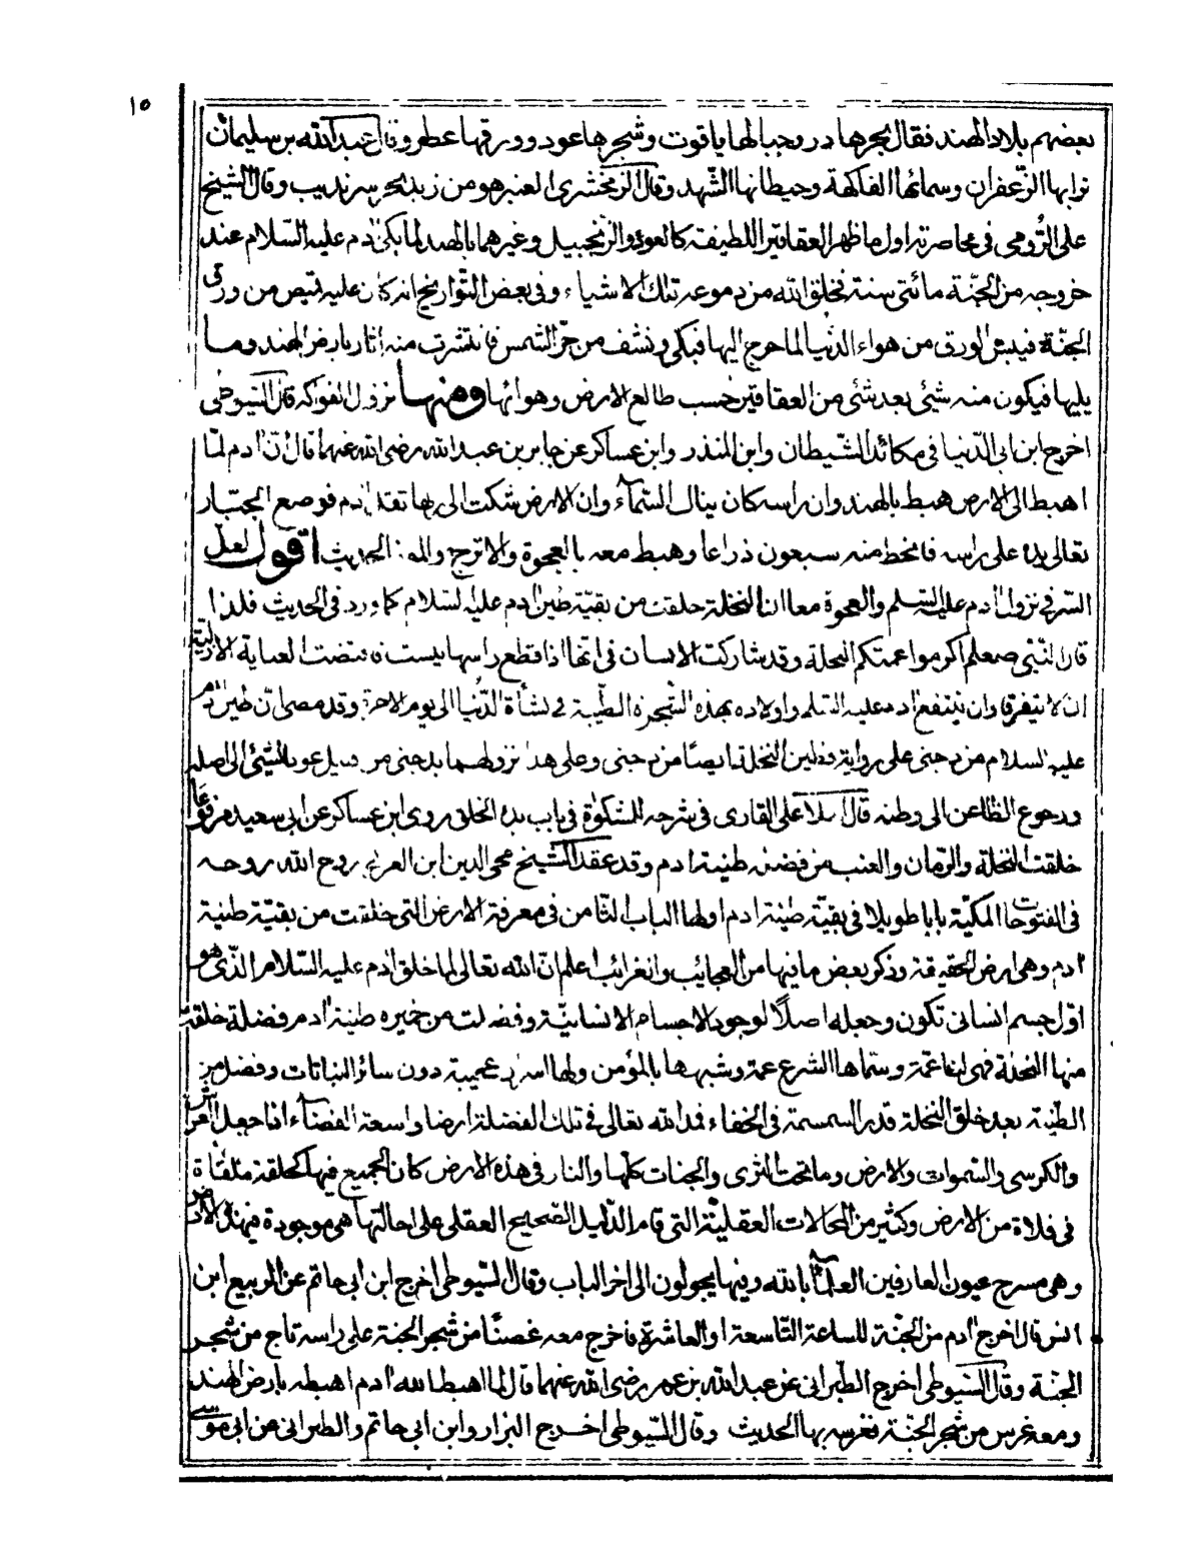 ١٥
بعضهم بلاد الهند فقال بحرها در وجبالها ياقوت وشجرها عود وورقها عطر وقال عبد الله بن سليمان
ترابها الزعفران وسمائها الفاكهة وحيطانها الشهد وقال الزمخشرى العنبر هو من زبد بحر سرنديب وقال الشيخ
على الرومى فى محاضرته اول ما ظهر العقاقير اللطيفة كالعود والزنجبيل وغيرهما بالهند لما بكى ادم عليه السلام عند
خروجه من الجنة مائتى سنة فخلق الله من دموعه تلك الاشياء وفى بعض التواريخ انه كان عليه قميص من ورق
الجنة فيبس الورق من هواء الدنيا لما خرج اليها فبكى ونشف من حر الشمس فانتشرت منه اثار بارض الهند وما
يليها فيكون منه شيئ بعد شئ من العقاقير حسب طالع الارض وهوائها ومنها نزول الفواكه قال السيوطى
اخرج ابن ابى الدنيا فى مكائد الشيطان وابن المنذر وابن عساكر عن جابر بن عبد الله رضى الله عنهما قال ان ادم لما
اهبط الى الارض هبط بالهند وان راسه كان ينال السماء وان الارض شكت الى ربها ثقل ادم فوضع الجبار
تعالى يده على راسه فانحط منه سبعون ذراعا وهبط معه بالعجوة والاترج والموز الحديث اقول لعل
السر فى نزول ادم عليه السلم والعجوة معا ان النخلة خلقت من بقية طين ادم عليه السلام كما ورد فى الحديث فلذا
قال النبى صعلم اكرموا عمتكم النخلة وقد شاركت الانسان فى انها اذا قطع راسها يبست فاقتضت العناية الازلية
ان لا يتفرقا وان ينتفع ادم عليه السلم واولاده بهذه الشجرة الطيبة فى نشأة الدنيا الى يوم الاخرة وقد مضى ان طين ادم
عليه السلام من دجنى على رواية فطين النخلة ايضا من دجنى وعلى هذا نزولهما بدجنى من قبيل عود الشيئ الى اصله
ورجوع الظاعن الى وطنه قال ملا على القارى فى شرحه للمشكوة فى باب بدء الخلق روى ابن عساكر عن ابى سعيد مرفوعا
خلقت النخلة والرمان والعنب من فضل طينة ادم وقد عقد الشيخ محى الدين ابن العربى روح الله روحه
فى الفتوحات المكية بابا طويلا فى بقية طينة ادم اولها الباب الثامن فى معرفة الارض التى خلقت من بقية طينة
ادم وهى ارض الحقيقة وذكر بعض ما فيها من العجايب والغرائب اعلم ان الله تعالى لما خلق ادم عليه السلام الذى هو
اول جسم انسانى تكون وجعله اصلا لوجود الاجسام الانسانية وفضلت من خميرة طينة ادم فضلة خلق
منها النخلة فهى لنا عمة وسماها الشرع عمة وشبهها بالمؤمن ولها اسرار عجيبة دون سائر النباتات وفضل من
الطينة بعد خلق النخلة قدر السمسمة فى الخفاء فمد الله تعالى فى تلك الفضلة ارضا واسعة الفضاء اذا جعل العرش
والكرسى والسموات والارض وما تحت الثرى والجنات كلها والنار فى هذه الارض كان الجميع فيها كحلقة ملقاة
فى فلاة من الارض وكثير من المحالات العقلية التى قام الدليل الصحيح العقلى على احالتها هى موجودة فى هذه الارض
وهى مسرح عيون العارفين العلماء بالله وفيها يجولون الى اخر الباب وقال السيوطى اخرج ابن ابى حاتم عن الربيع ابن
انس قال اخرج ادم من الجنة للساعة التاسعة او العاشرة فاخرج معه غصنا من شجر الجنة على راسه تاج من شجر
الجنة وقال السيوطى اخرج الطبرانى عن عبد الله بن عمر رضى الله عنهما قال لما اهبط الله ادم اهبطه بارض الهند
ومعه غرس من شجر الجنة فغرسه بها الحديث وقال السيوطى اخرج البزار وابن ابى حاتم والطبرانى عن ابى موسى